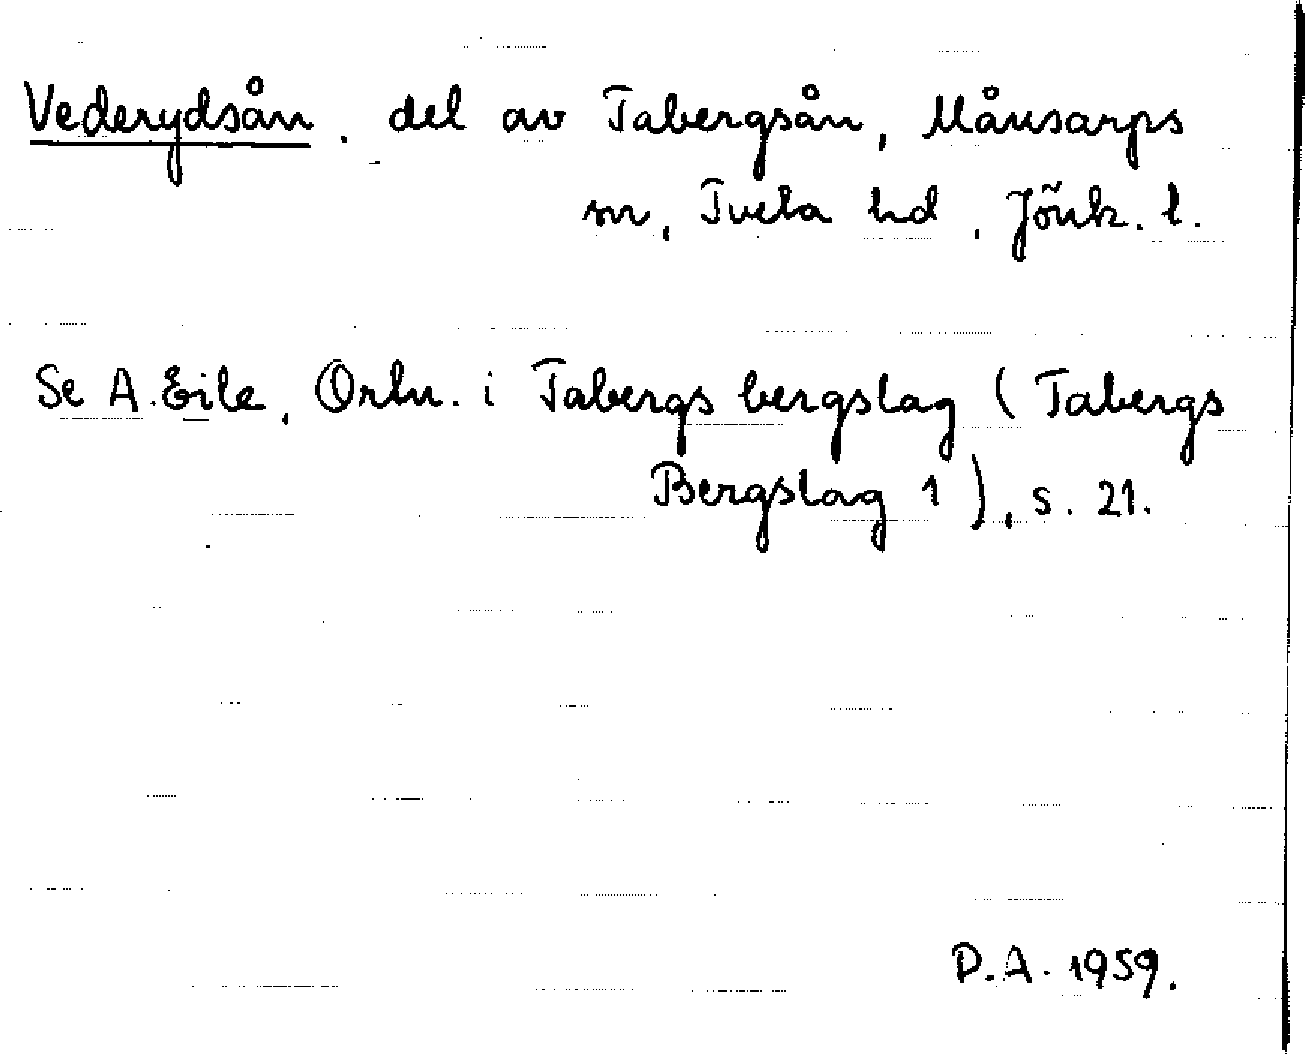 Vederydsån, del av Tabergsån, Månsarps
sn, Tveta hd, Jönk. l.
Se A. Eile, Ortn. i Tabergs bergslag (Tabergs
Bergslag 1), s. 21.
D.A. 1959.